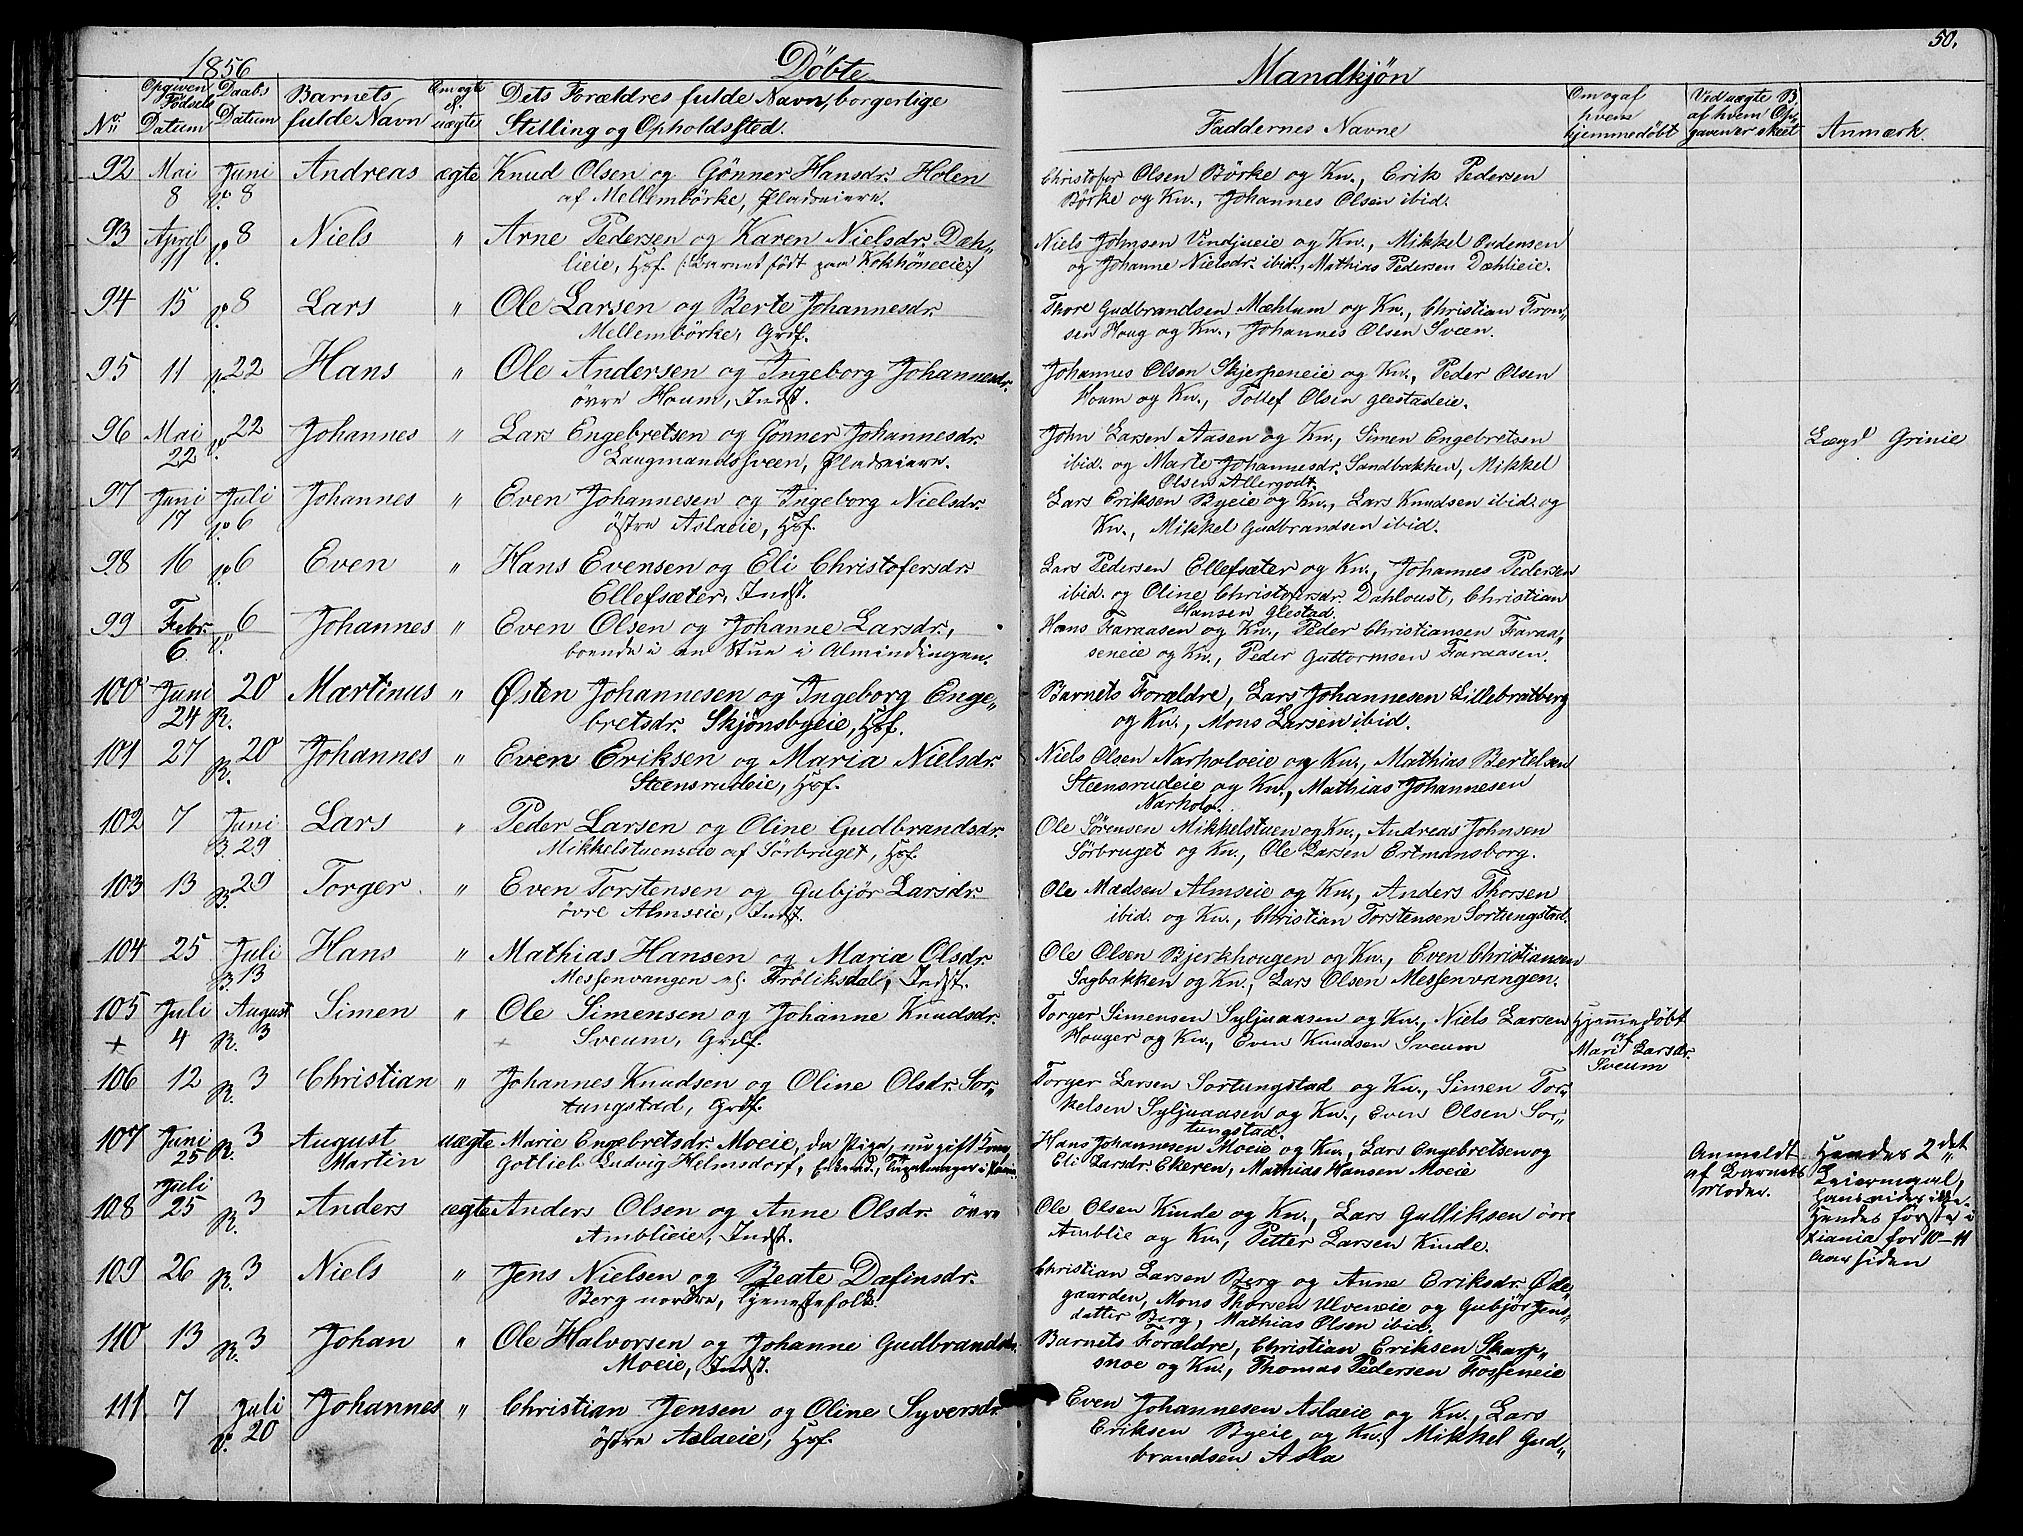 1856 Döbte Mandkjøn 50.
No Opgiven Födsels Datum Daabs Datum Barnets fulde Navn Om ægte ell. uægte Dets Forældres fulde Navn, borgerlige Stilling og Opholdssted. Faddernes Navne Om og af hvem hjemmedöbt Ved uægte B. af hvem Opgaven er skeet Anmærk.
92 Mai 8 Juni 8 Andreas ægte Knud Olsen og Gönner Hansdr. Holen Christofer Olsen Börke og Kn., Erik Pedersen
af Mellembörke, Pladseiere. Börke og Kn., Johannes Olsen ibid.
93 April 11 8 Niels " Arne Pedersen og Karen Nielsdr. Dæh- Niels Johnsen Vindjueie og Kn., Mikkel Evdensen
lieie, Hsf. (: Barnet födt paa Kokhöneeie:) og Johanne Nielsdr. ibid., Mathias Pedersen Dæhlieie.
94 15 8 Lars " Ole Larsen og Berte Johannesdr. Thore Gudbrandsen Mæhlum og Kn., Christian Tron-
Mellembörke, Grdf. sen Houg og Kn., Johannes Olsen Sveen.
95 11 22 Hans " Ole Andersen og Ingeborg Johannesdr. Johannes Olsen Skjerpeneie og Kn., Peder Olsen
övre Houm, Indst. Houm og Kn., Tollef Olsen Glestadeie.
96 Mai 22 22 Johannes " Lars Engebretsen og Gönner Johannesdr. John Larsen Aasen og Kn., Simen Engebretsen Lægd Grinie
Laugmandssveen, Pladseiere. ibid. og Marte Johannesdr. Sandbakken, Mikkel
Olsen Allergodt.
97 Juni 17 Juli 6 Johannes " Even Johannesen og Ingeborg Nielsdr. Lars Eriksen Byeie og Kn., Lars Knudsen ibid. og
östre Aslaeie, Hsf. Kn., Mikkel Gudbrandsen ibid.
98 16 6 Even " Hans Evensen og Eli Christofersdr. Lars Pedersen Ellefsæter og Kn., Johannes Pedersen
Ellefsæter, Indst. ibid. og Oline Christofersdr. Dahloust, Christian
Hansen Glestad.
99 Febr. 6 6 Johannes " Even Olsen og Johanne Larsdr., Hans Faraasen og Kn., Peder Christiansen Faraa-
boende i en Stue i Almindingen. seneie og Kn., Peder Guttormsen Faraasen.
100 Juni 24 20 R. Martinus " Østen Johannesen og Ingeborg Enge- Barnets Forældre, Lars Johannesen Lillebratberg
bretsdr. Skjönsbyeie, Hsf. og Kn., Mons Larsen ibid.
101 27 R. 20 Johannes " Even Eriksen og Maria Nielsdr. Niels Olsen Narholoeie og Kn., Mathias Bertelsen
Steensrudeie, Hsf. Steensrudeie og Kn., Mathias Johannesen
Narholo.
102 7 Juni B. 29 Lars " Peder Larsen og Oline Gudbrandsdr. Ole Sörensen Mikkelstuen og Kn., Andreas Johnsen
Mikkelstueneie af Sörbruget, Hsf. Sörbruget og Kn., Ole Larsen Ertmansborg.
103 13 B. 29 Torger " Even Torstensen og Gubjör Larsdr. Ole Madsen Almseie og Kn., Anders Thorsen
övre Almseie, Indst. ibid. og Kn., Christian Torstensen Sortungstad.
104 25 Juli B. 13 Hans " Mathias Hansen og Maria Olsdr. Ole Olsen Bjerkhougen og Kn., Even Christiansen
Messenvangen Fröliksdal, Indst. Sagbakken og Kn., Lars Olsen Messenvangen.
105 + Juli 4 August R. 3 Simen " Ole Simensen og Johanne Knudsdr. Torger Simensen Syljuaasen og Kn., Niels Larsen Hjemmedöbt
+ Sveum, Grdf. Houger og Kn., Even Knudsen Sveum af Mari Larsdr. Sveum
106 12 R. 3 Christian " Johannes Knudsen og Oline Olsdr. Sor- Torger Larsen Sortungstad og Kn., Simen Tor-
tungstad, Grdf. kelsen Syljuaasen og Kn., Even Olsen Sor-
tungstad.
107 Juni 25 R. 3 August Martin uægte Marie Engebretsdr. Moeie, da Pige, nu gift Kone, Hans Johannesen Moeie og Kn., Lars Engebretsen og
Gottlieb Ludvig Helmsdorf, Eli Larsdr. Ekeren, Mathias Hansen Moeie
Anmeldt af Barnets Moder. Hendes 2det Leiermaal, Hendes förste i Xiania for 10-11 Aar siden
108 Juli 25 R. 3 Anders ægte Anders Olsen og Anne Olsdr. övre Ole Olsen Kinde og Kn., Lars Gulliksen övre
Amblieie, Indst. Amblie og Kn., Petter Larsen Kinde.
109 26 R. 3 Niels " Jens Nielsen og Beate Dafinsdr. Christian Larsen Berg og Anne Eriksdr. Øde-
Berg nordre, Tjenestefolk. gaarden, Mons Thorsen Ulveneie og Gubjör Jens-
datter Berg, Mathias Olsen ibid.
110 13 R. 3 Johan " Ole Halvorsen og Johanne Gudbrandsdr. Barnets Forældre, Christian Eriksen Skarp-
Moeie, Indst. snoe og Kn., Thomas Pedersen Fosseneie
111. 7 Juli 20 Johannes " Christian Jensen og Oline Syversdr. Even Johannesen Aslaeie og Kn., Lars
östre Aslaeie, Hsf. Eriksen Byeie og Kn., Mikkel Gud-
brandsen Asla